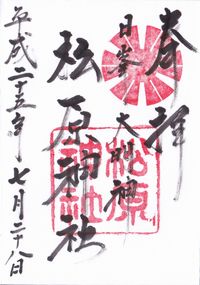 奉拝
日峯大明神
松原神社
平成二十五年七月二十八日
松原
神社